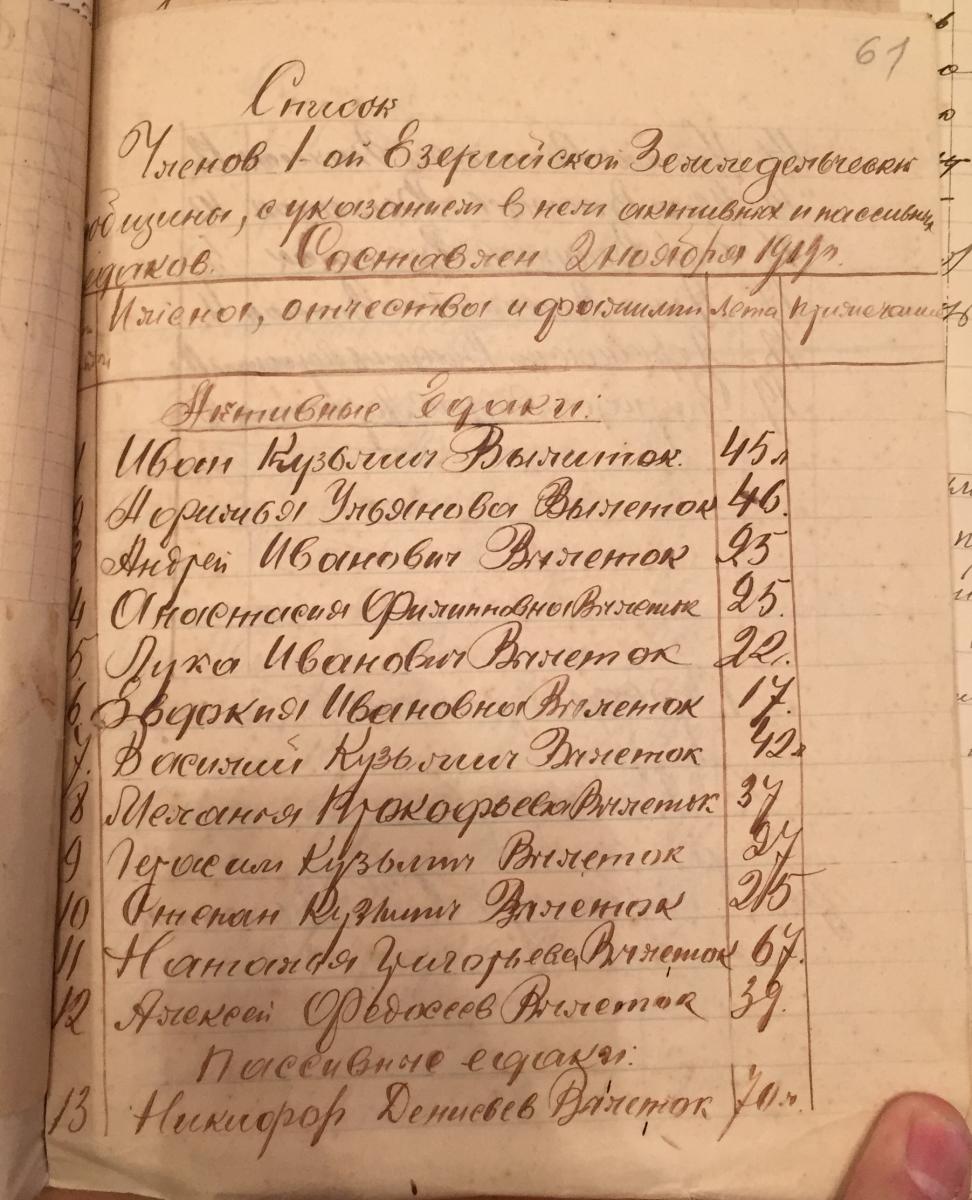 61
Список
Членов 1-ой Езерийской Земледельческ
общины, с указанием в нем активных и пассивных
едаков. Составлен 2 ноября 1919 г.
Имена, отчества и фамилии Лета Примечания
Активные Едаки:
1 Иван Кузьмич Вылиток. 45 л
2 Афимья Ульянова Вылеток 46.
3 Андрей Иванович Вылеток 25
4 Анастасия Филипповна Вылеток 25.
5. Лука Иванович Вылеток 22.
6. Эвдокия Ивановна Вылеток 17.
7. Василий Кузьмич Вылеток 42 л
8 Мелания Прокофьева Вылеток 37
9 Герасим Кузьмич Вылеток 27
10 Степан Кузьмич Вылеток 25
11 Наталия Григорьева Вылеток 67.
12 Алексей Федосеев Вылеток 39.
Пассивные едаки:
13 Никифор Денисьев Вылеток 70 л.